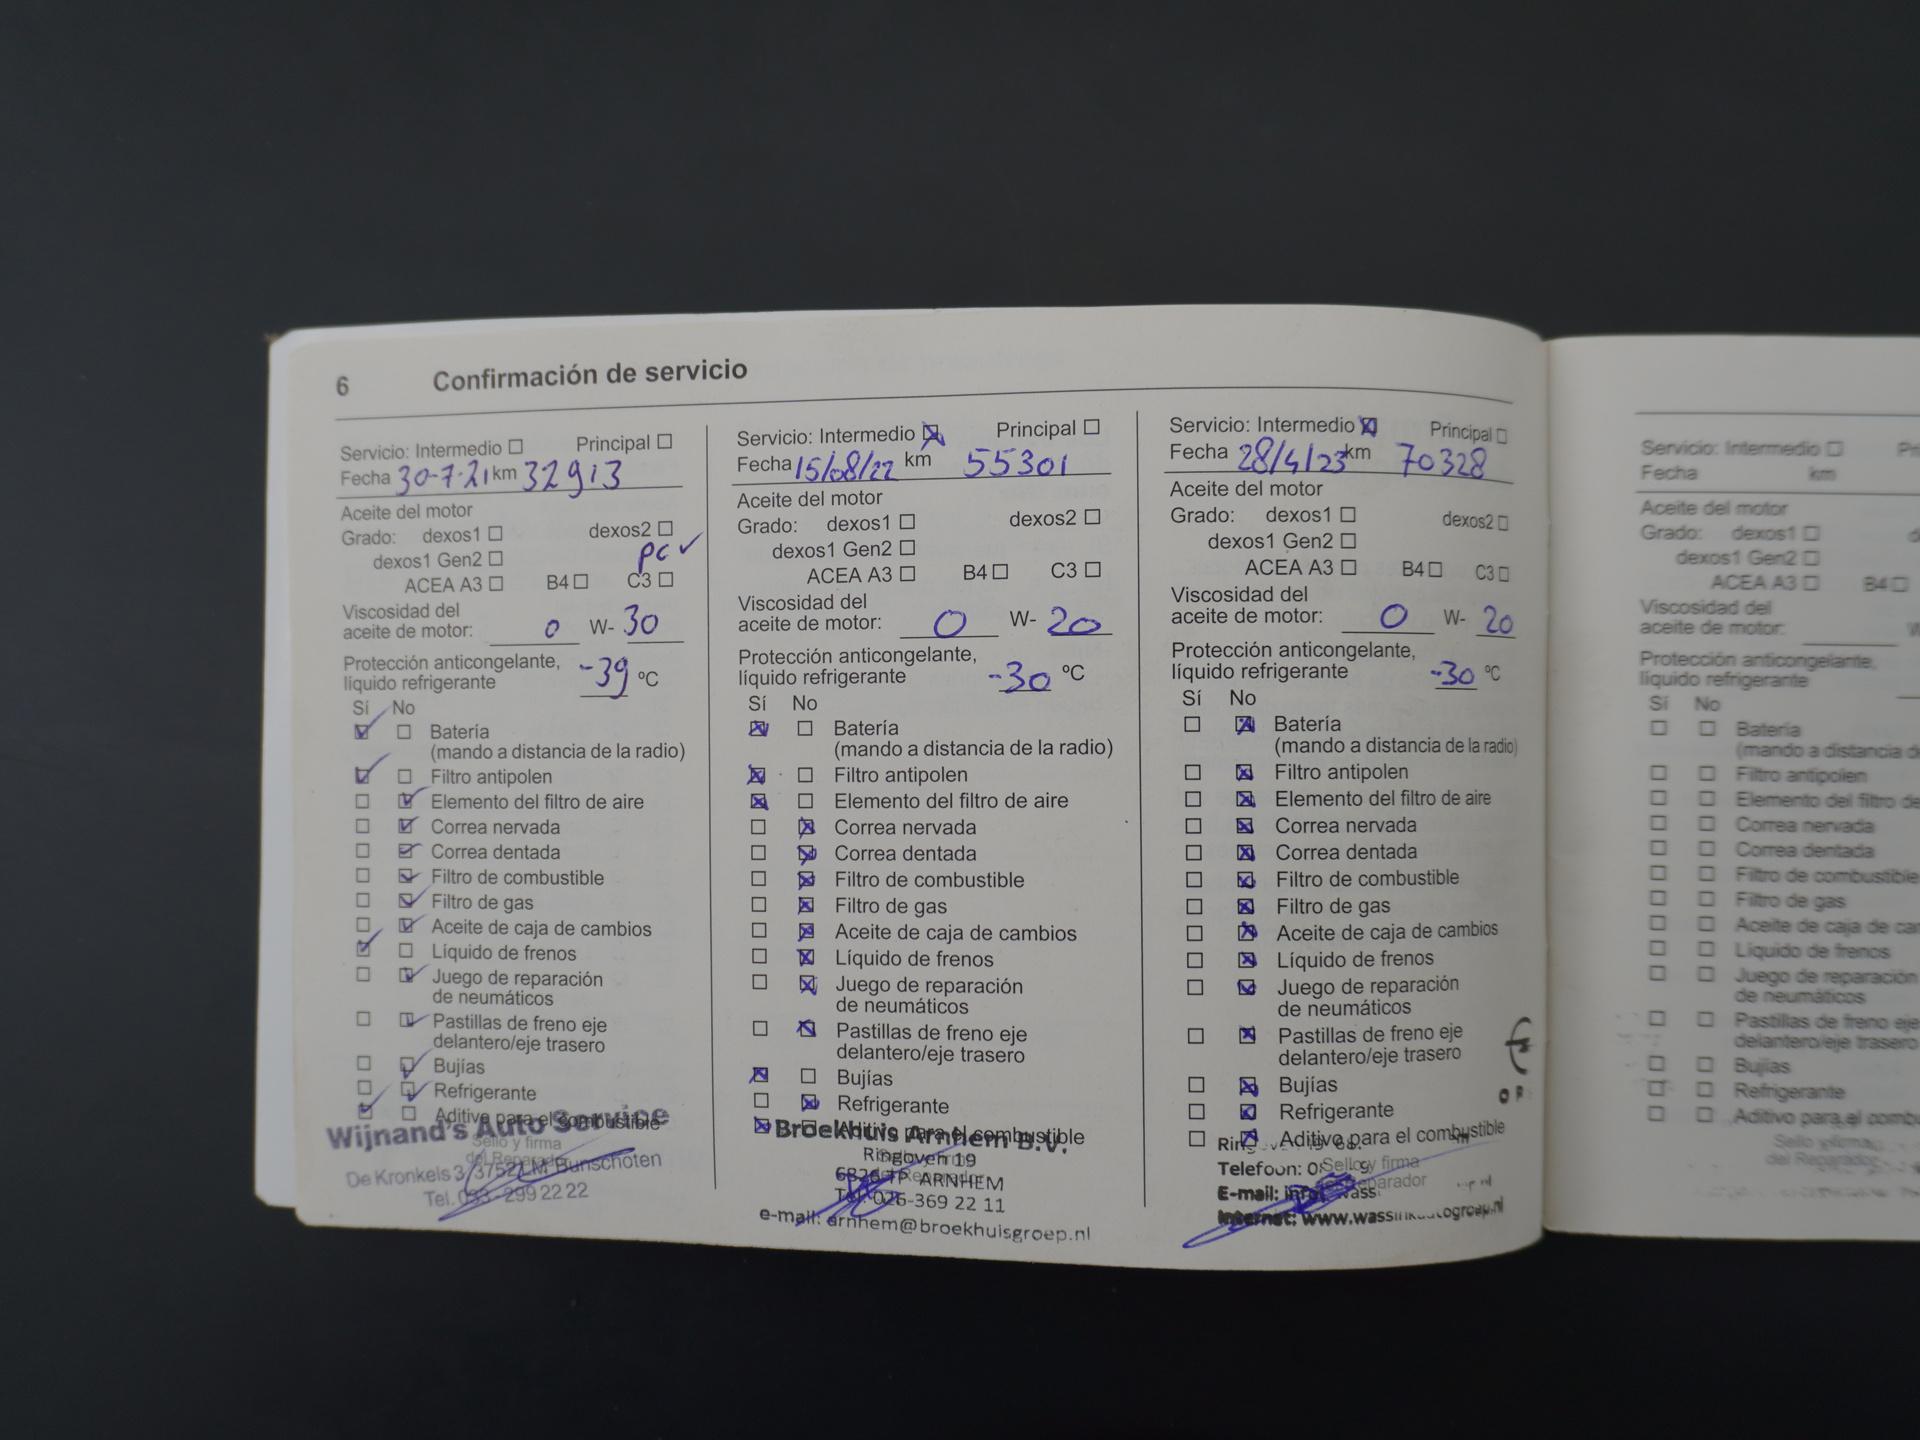 6 Confirmación de servicio
Servicio: Intermedio ☐ Principal ☐
Fecha 30-7-21 km 32913
Aceite del motor
Grado: dexos1 ☐ dexos2 ☐
dexos1 Gen2 ☐ pc ✓
ACEA A3 ☐ B4 ☐ C3 ☐
Viscosidad del
aceite de motor: 0 W- 30
Protección anticongelante,
líquido refrigerante -39 ºC
Sí No
☑ ☐ Batería
(mando a distancia de la radio)
☑ ☐ Filtro antipolen
☐ ☑ Elemento del filtro de aire
☐ ☑ Correa nervada
☐ ☑ Correa dentada
☐ ☑ Filtro de combustible
☐ ☑ Filtro de gas
☐ ☑ Aceite de caja de cambios
☑ ☐ Líquido de frenos
☐ ☑ Juego de reparación
de neumáticos
☐ ☑ Pastillas de freno eje
delantero/eje trasero
☐ ☑ Bujías
☐ ☑ Refrigerante
☑ ☐ Aditivo para el combustible
Wijnand's Auto Service
Sello y firma
del Reparador
De Kronkels 3, 3752 LM Bunschoten
Tel. 033-299 22 22
Servicio: Intermedio ☒ Principal ☐
Fecha 15/08/22 km 55301
Aceite del motor
Grado: dexos1 ☐ dexos2 ☐
dexos1 Gen2 ☐
ACEA A3 ☐ B4 ☐ C3 ☐
Viscosidad del
aceite de motor: 0 W- 20
Protección anticongelante,
líquido refrigerante -30 ºC
Sí No
☒ ☐ Batería
(mando a distancia de la radio)
☒ ☐ Filtro antipolen
☒ ☐ Elemento del filtro de aire
☐ ☒ Correa nervada
☐ ☒ Correa dentada
☐ ☒ Filtro de combustible
☐ ☒ Filtro de gas
☐ ☒ Aceite de caja de cambios
☐ ☒ Líquido de frenos
☐ ☒ Juego de reparación
de neumáticos
☐ ☒ Pastillas de freno eje
delantero/eje trasero
☒ ☐ Bujías
☐ ☒ Refrigerante
☒ ☐ Aditivo para el combustible
Broekhuis Arnhem B.V.
Ringoven 19
6826 TP ARNHEM
Tel. 026-369 22 11
e-mail: arnhem@broekhuisgroep.nl
Servicio: Intermedio ☒ Principal ☐
Fecha 28/4/23 km 70328
Aceite del motor
Grado: dexos1 ☐ dexos2 ☐
dexos1 Gen2 ☐
ACEA A3 ☐ B4 ☐ C3 ☐
Viscosidad del
aceite de motor: 0 W- 20
Protección anticongelante,
líquido refrigerante -30 ºC
Sí No
☐ ☒ Batería
(mando a distancia de la radio)
☐ ☒ Filtro antipolen
☐ ☒ Elemento del filtro de aire
☐ ☒ Correa nervada
☐ ☒ Correa dentada
☐ ☒ Filtro de combustible
☐ ☒ Filtro de gas
☐ ☒ Aceite de caja de cambios
☐ ☒ Líquido de frenos
☐ ☒ Juego de reparación
de neumáticos
☐ ☒ Pastillas de freno eje
delantero/eje trasero
☐ ☒ Bujías
☐ ☒ Refrigerante
☐ ☒ Aditivo para el combustible
Telefoon:
Sello y firma
E-mail:
Internet: www.wassinkautogroep.nl
Servicio: Intermedio ☐
Fecha km
Aceite del motor
Grado: dexos1 ☐
dexos1 Gen2 ☐
ACEA A3 ☐ B4 ☐
Viscosidad del
aceite de motor:
Protección anticongelante,
líquido refrigerante
Sí No
☐ ☐ Batería
(mando a distancia
☐ ☐ Filtro antipolen
☐ ☐ Elemento del filtro de
☐ ☐ Correa nervada
☐ ☐ Correa dentada
☐ ☐ Filtro de combustible
☐ ☐ Filtro de gas
☐ ☐ Aceite de caja de
☐ ☐ Líquido de frenos
☐ ☐ Juego de reparación
de neumáticos
☐ ☐ Pastillas de freno eje
delantero/eje trasero
☐ ☐ Bujías
☐ ☐ Refrigerante
☐ ☐ Aditivo para el
Sello y firma
del Reparador